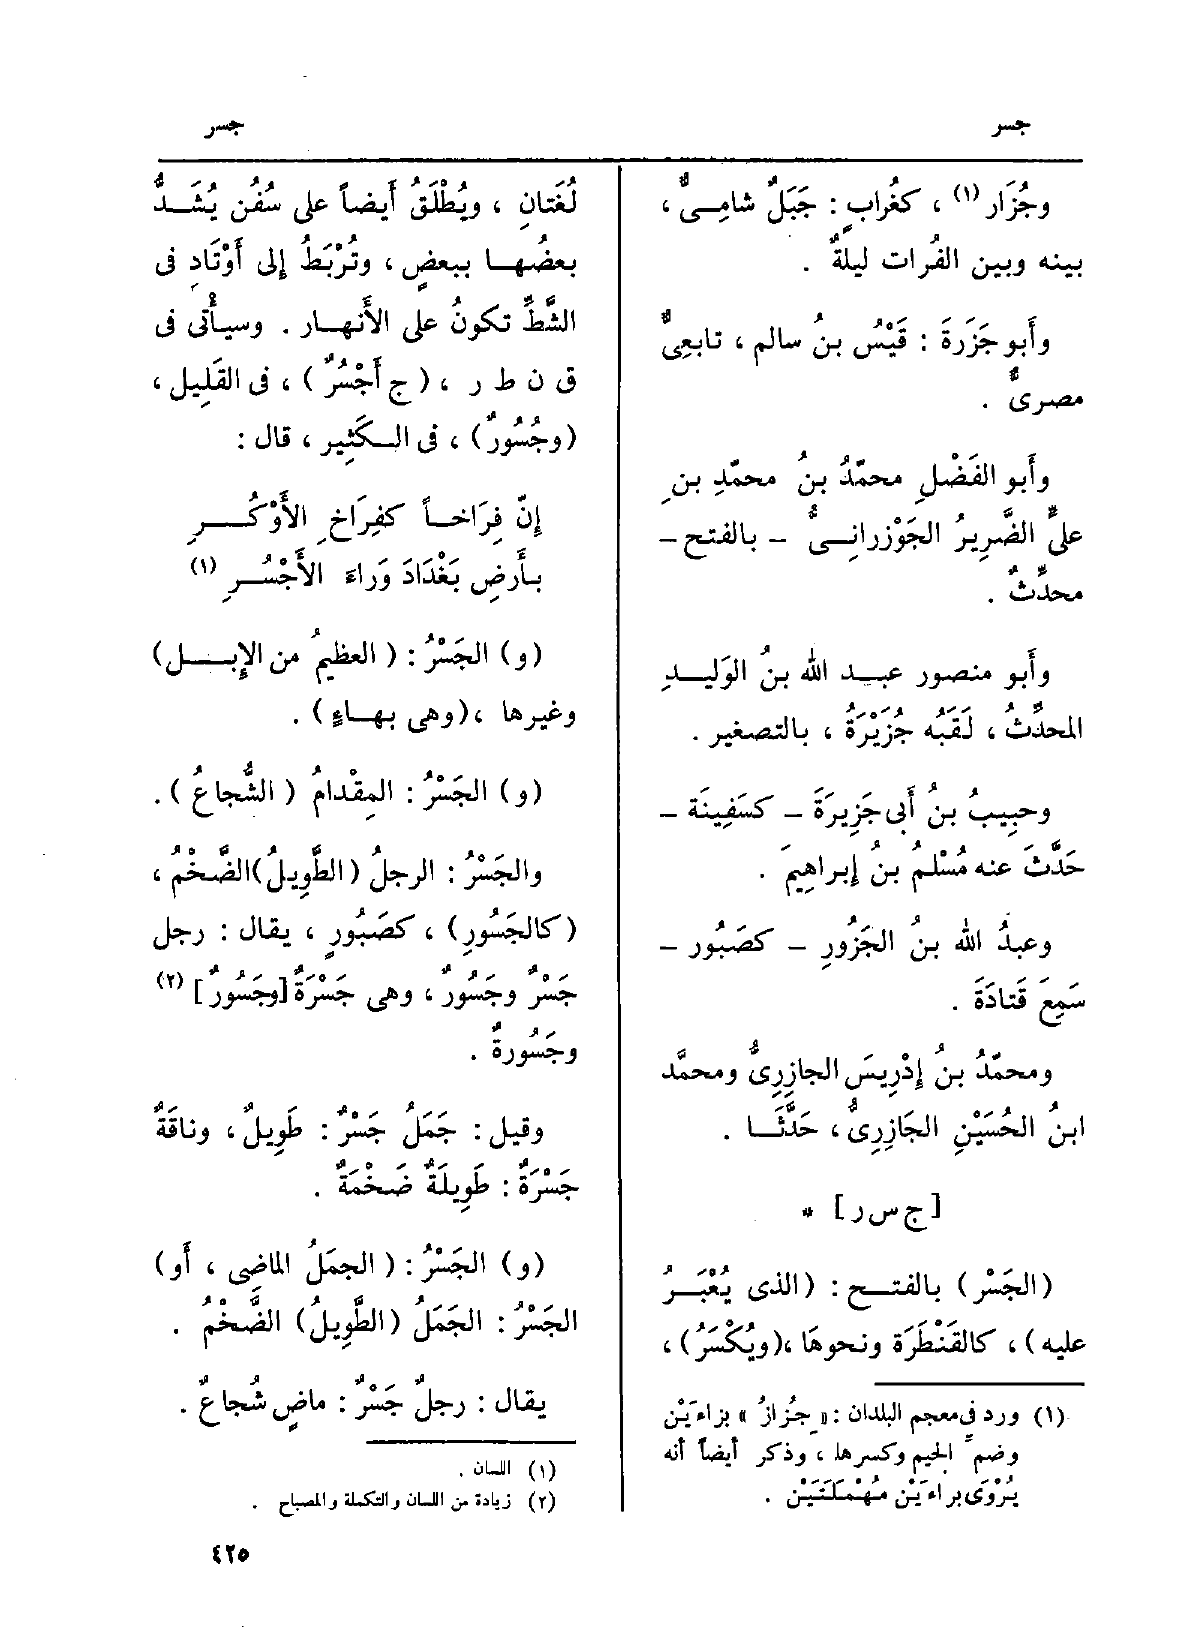 جسر
جسر
وجُزَار (١) ، كغُرابٍ : جَبَلٌ شامِـىٌّ ،
بينه وبين الفُرات ليلةٌ .
وأَبو جَزَرةَ : قَيْسُ بنُ سالم ، تابعِىٌّ
مصرىٌّ .
وأَبو الفَضْلِ محمّدُ بنُ محمّدِ بنِ
علىٍّ الضَّرِيرُ الجَوْزرانِـىُّ - بالفتح -
محدِّثٌ .
وأَبو منصور عبـد الله بنُ الوَليـدِ
المحدِّثُ ، لَقَبُه جُزَيْرَةُ ، بالتصغير .
وحبِيبُ بنُ أَبى جَزِيرَةَ - كسَفِينَة -
حَدَّثَ عنه مُسْلمُ بنُ إِبراهِيمَ .
وعبدُ الله بنُ الجَزُورِ - كصَبُور -
سَمِعَ قَتادَةَ .
ومحمّدُ بنُ إِدْرِيسَ الجازِرِىُّ ومحمَّد
ابنُ الحُسَيْنِ الجَازِرِىُّ ، حَدَّثَـا .
[ ج س ر ] *
(الجَسْر) بالفتـح : (الذى يُعْبَـرُ
عليه) ، كالقَنْطَرَة ونحوهَا ،(ويُكْسَرُ) ،
(١) ورد فى معجم البلدان : « جُِزازُ » بزاءَيْن
وضم الجيم وكسرها ، وذكر أيضاً أنه
يُرْوَى براءَيْن مُهْمَلَتَيْن .
لُغَتانِ ، ويُطْلَقُ أَيضاً على سُفُن يُشَـدُّ
بعضُهـا ببعضٍ ، وتُرْبَطُ إِلى أَوْتَادٍ فى
الشَّطِّ تكونُ على الأَنهـار . وسيأْتى فى
ق ن ط ر ، ( ج أَجْسُرٌ ) ، فى القَلِيل ،
(وجُسُورٌ) ، فى الـكَثِير ، قال :
إِنّ فِرَاخـاً كفِرَاخِ الأَوْكُـرِ
بـأَرضِ بَغْدَادَ وَراءَ الأَجْسُـرِ (١)
(و) الجَسْرُ : ( العظيمُ من الإِبـل)
وغيرها ،(وهى بهـاءٍ) .
(و) الجَسْرُ : المِقْدامُ ( الشُّجاعُ ) .
والجَسْرُ : الرجلُ (الطَّوِيلُ)الضَّخْمُ ،
(كالجَسُورِ) ، كصَبُورٍ ، يقال : رجل
جَسْرٌ وجَسُورٌ ، وهى جَسْرَةٌ [وجَسُورٌ] (٢)
وجَسُورةٌ .
وقيل : جَمَلٌ جَسْرٌ : طَوِيلٌ ، وناقَةٌ
جَسْرَةٌ : طَوِيلَةٌ ضَخْمَةٌ .
(و) الجَسْرُ : ( الجمَلُ الماضِى ، أَو)
الجَسْرُ : الجَمَلُ (الطَّوِيلُ) الضَّخْمُ .
يقال : رجلٌ جَسْرٌ : ماضٍ شُجاعٌ .
(١) اللسان .
(٢) زيادة من اللسان والتكملة والمصباح .
٤٢٥